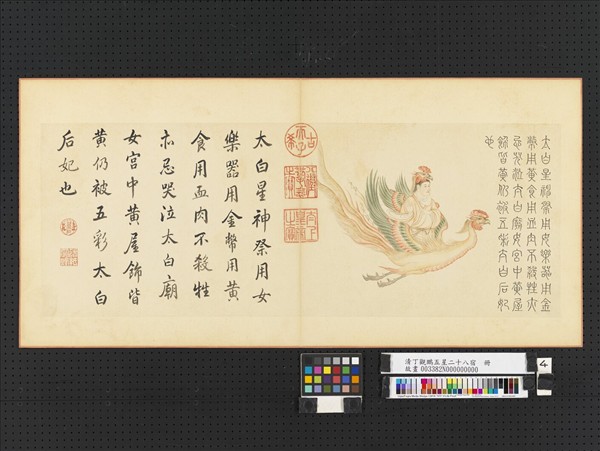 太白星神祭用女樂器用金
幣用黃食用血肉不殺牲亦
忌哭泣太白廟女宮中黃屋
飾皆黃仍被五彩太白后妃
也
古希天子
太白星神祭用女
樂器用金幣用黃
食用血肉不殺牲
亦忌哭泣太白廟
女宮中黃屋飾皆
黃仍被五彩太白
后妃也
清丁觀鵬五星二十八宿 冊
故畫 003382N000000000
4